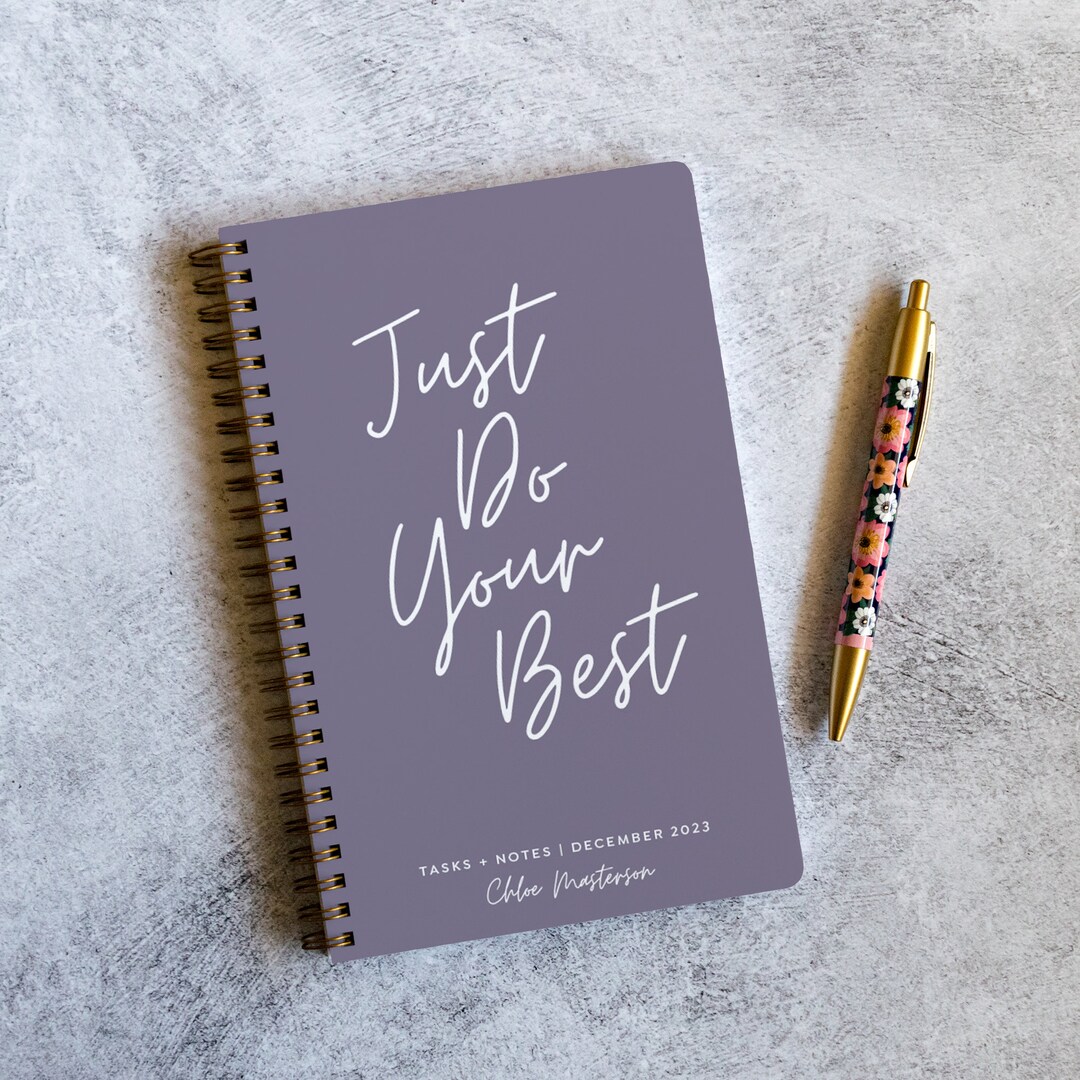 Just
Do
Your
Best
TASKS + NOTES | DECEMBER 2023
Chloe Masterson